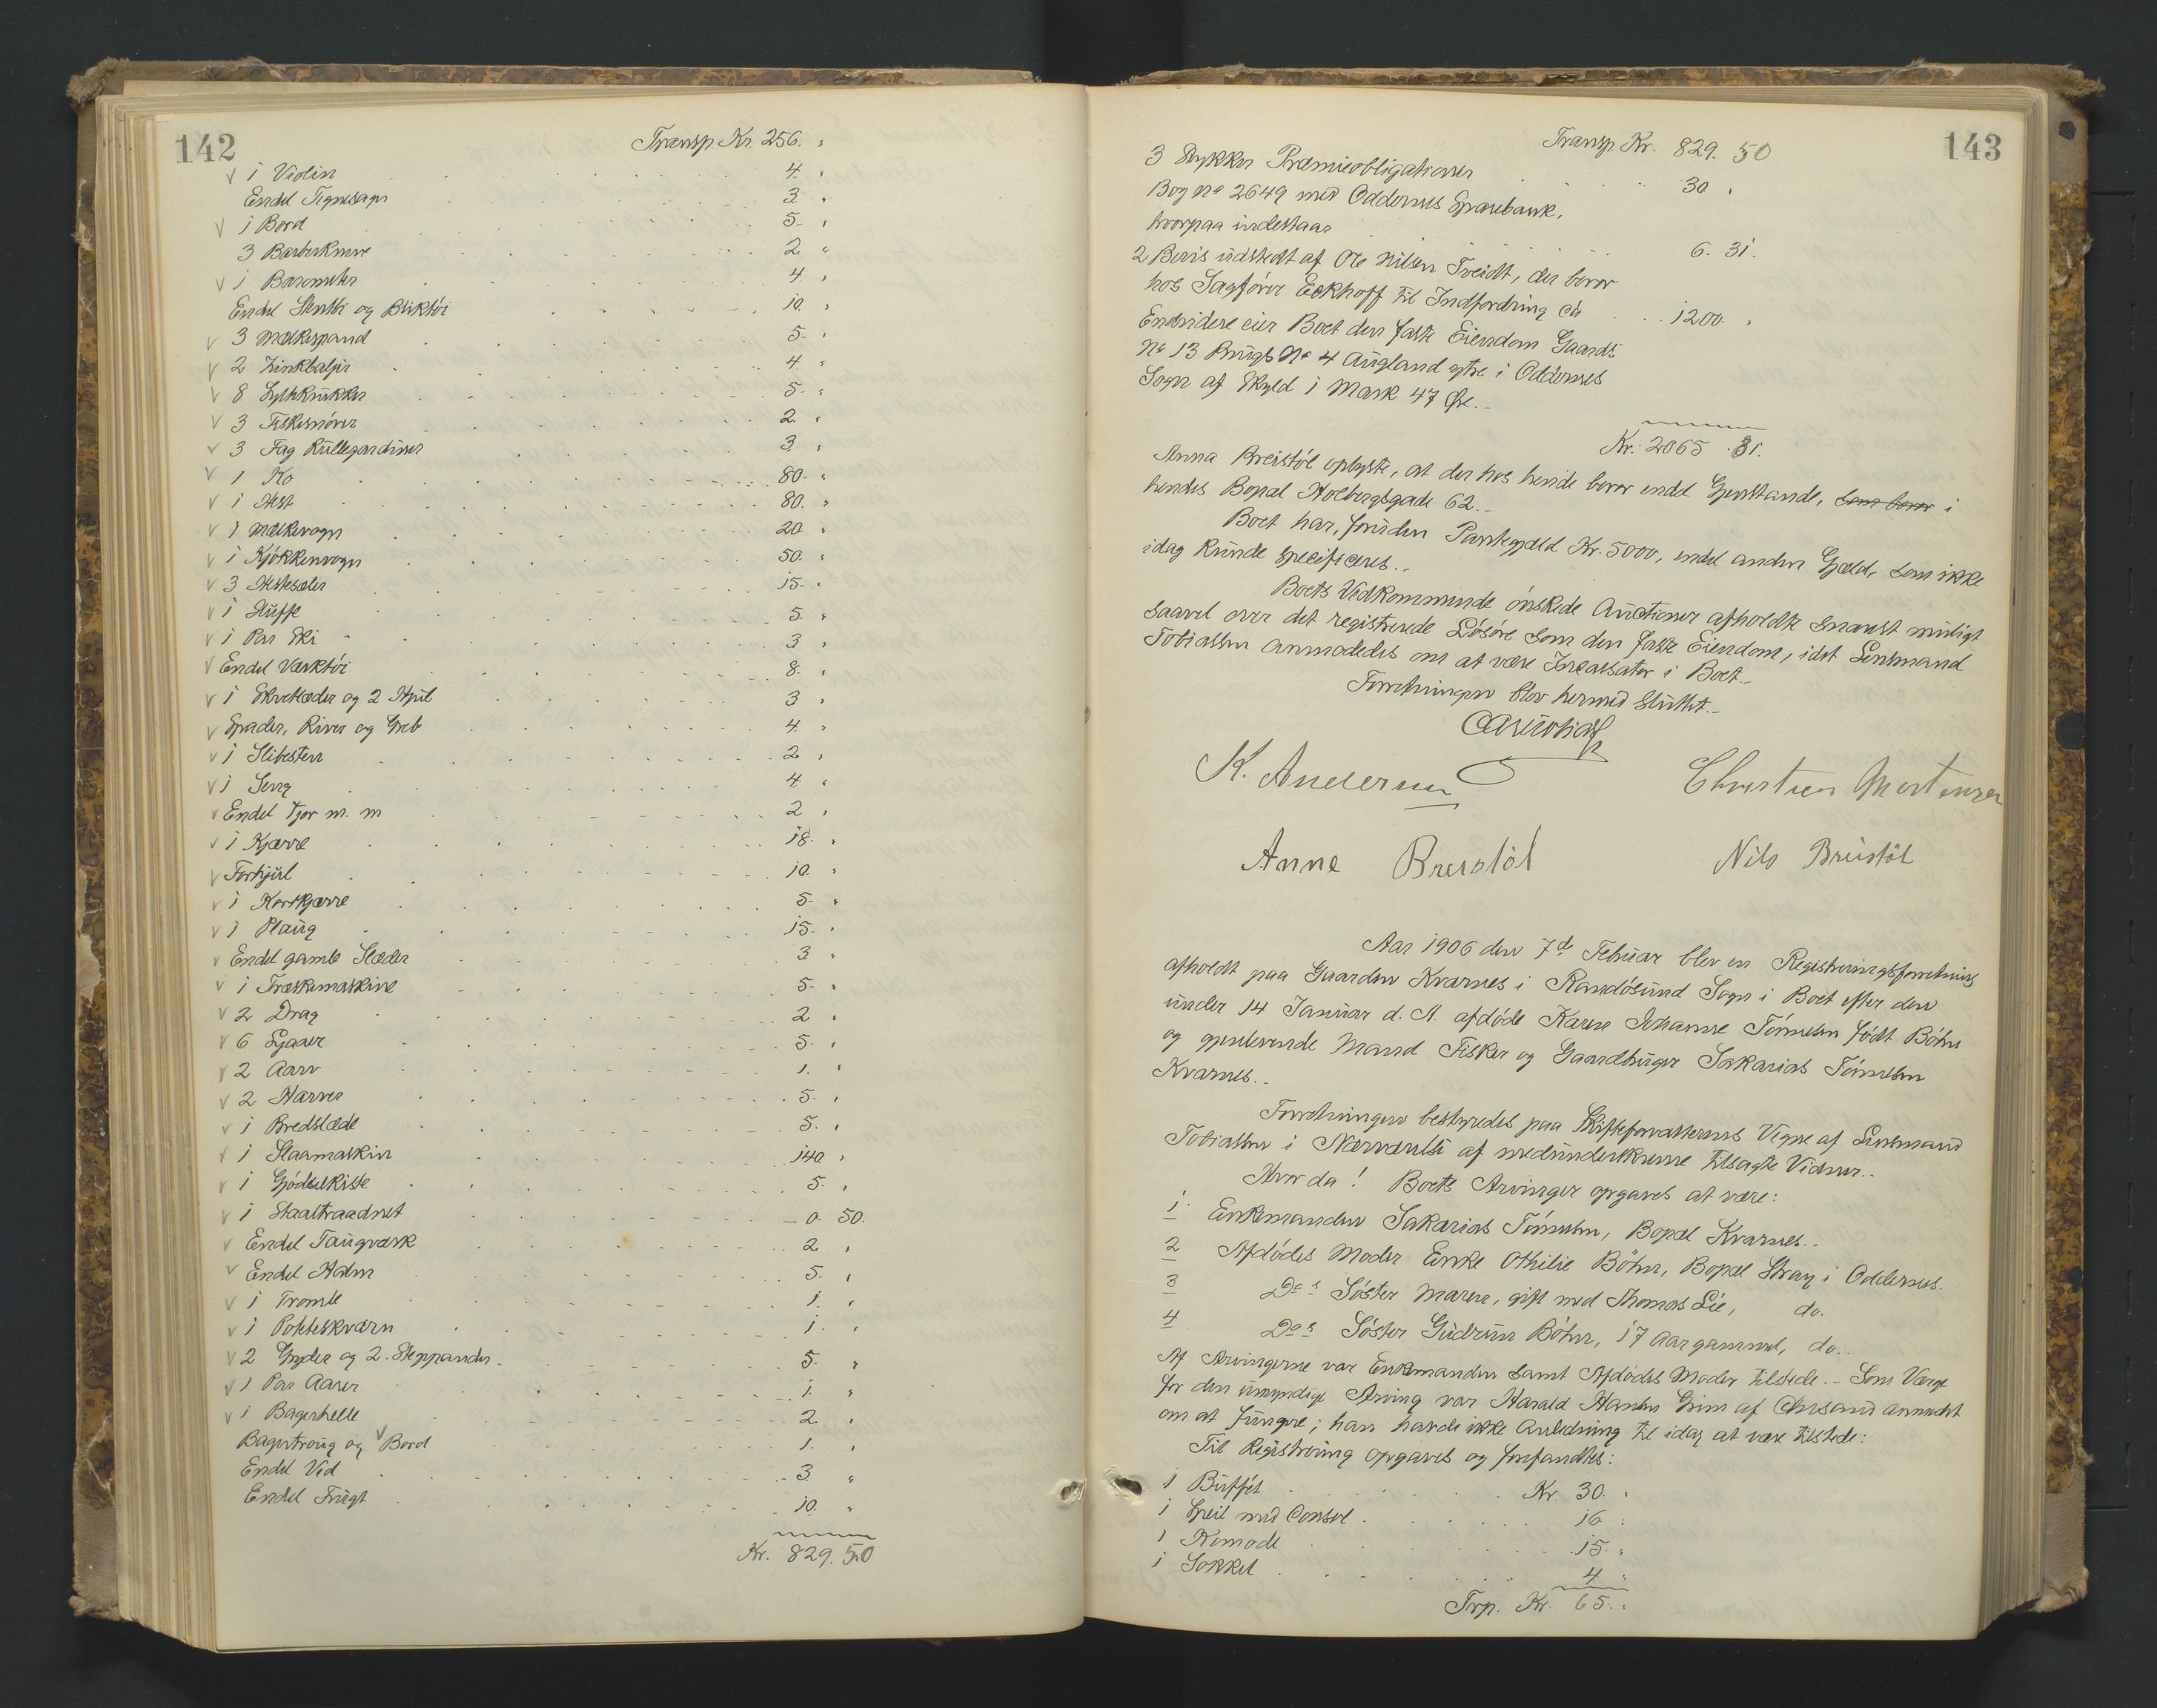 142
Transp. Kr. 256. "
1 Violin 4. "
Endel Tegnesager 3. "
1 Bord 5. "
3 Barberknive 2. "
1 Barometer 4. "
Endel Stentøi og Bliktøi 10. "
3 Melkespand 5. "
2 Zinkbaljer 4. "
8 Sylt­ekrukker 5. "
3 Fiskesnører 2. "
3 Fag Rullegardiner 3. "
1 Ko 80. "
1 Hest 80. "
1 Melkevogn 20. "
1 Kjøkkenvogn 50. "
3 Hestesæler 15. "
1 Sluffe 5. "
1 Par Ski 3. "
Endel Værktøi 8. "
1 Skvetlæder og 2 Hjul 3 "
Spader, River og Greb 4. "
1 Slibesten 2 "
1 Seng 4. "
Endel Tjor m. m 2 "
1 Kjærre 18. "
Forhjul 10. "
1 Karrkjærre 5. "
1 Plaug 15. "
Endel gamle Slæder 3. "
1 Træskemaskine 5. "
2 Drag 2 "
6 Ljaaer 5. "
2 Aarv 1. "
2 Harver 5. "
1 Bredslæde 5. "
1 Slaamaskin 140. "
1 Gjødselkiste 5. "
1 Staaltraadnet 0. 50.
Endel Taugværk 2 "
Endel Halm 5. "
1 Tromle 1. "
1 Potteskværn 1. "
2 Gryder og 2 Steppander 5. "
1 Par Aarer 1. "
1 Bagerhelle 2. "
Bagertroug og Bord 1. "
Endel Ved 3. "
Endel Frugt 10. "
Kr. 829. 50
143
Transp. Kr. 829. 50
3 Stykker Præmieobligationer 30 "
Bog No 2649 med Oddernes Sparebank,
hvorpaa indestaar 6. 31.
2 Bevis udstedt af Ole Nilsen Tveidt, der beror
hos Sagfører Eckhoff til Indfordring ca 1200. "
Endvidere eier Boet den faste Eiendom Gaards
No 13 Brugs No 4 Augland ytre i Oddernes
Sogn af Skyld 1 Mark 47 Øre.
Kr. 2065. 81.
Anna Breistøl oplyste, at der hos hende beror endel Gjenstande, som beror i
hendes Bopæl Holbergsgade 62.
Boet har, foruden Pantegjæld Kr. 5000, endel anden Gjæld, som ikke
idag kunde specificeres.
Boets Vedkommende ønskede Auctioner afholdte snarest muligt
saavel over det registrerede Løsøre som den faste Eiendom, idet Lensmand
Tobiassen anmodedes om at være Incassator i Boet.
Forretningen blev hermed sluttet.
K. Andersen Christian Mortensen
Anne Breistöl Nils Breistöl
Aar 1906 den 7de Februar blev en Registreringsforretning
afholdt paa Gaarden Kvarnes i Randøsund Sogn i Boet efter den
under 14 Januar d. A. afdøde Karen Johanne Tønnesen født Bøhn
og gjenlevende Mand Fisker og Gaardbruger Sakarias Tønnesen
Kvarnes.
Forretningen bestyredes paa Skifteforvalterens Vegne af Lensmand
Tobiassen i Nærværelse af medunderskrevne tilsagte Vidner.
Hvor da! Boets Arvinger opgaves at være:
1. Enkemanden Sakarias Tønnesen, Bopæl Kvarnes.
2 Afdødes Moder Enke Othilie Bøhn, Bopæl Stray i Oddernes.
3 Do s Søster Maren, gift med Thomas Lie, do.
4 Do s Søster Gudrun Bøhn, 17 Aar gammel, do.
Af Arvingerne var Enkemanden samt Afdødes Moder tilstede. Som Værge
for den umyndige Arving var Harald Hansen Grim af Chrsand anmodet
om at fungere; han havde ikke Anledning til idag at være tilstede:
Til Registrering opgaves og forefandtes:
1 Buffét Kr. 30. "
1 Speil med Consol 16 "
1 Komode 15. "
1 Sokkel 4 "
Trp. Kr. 65. "